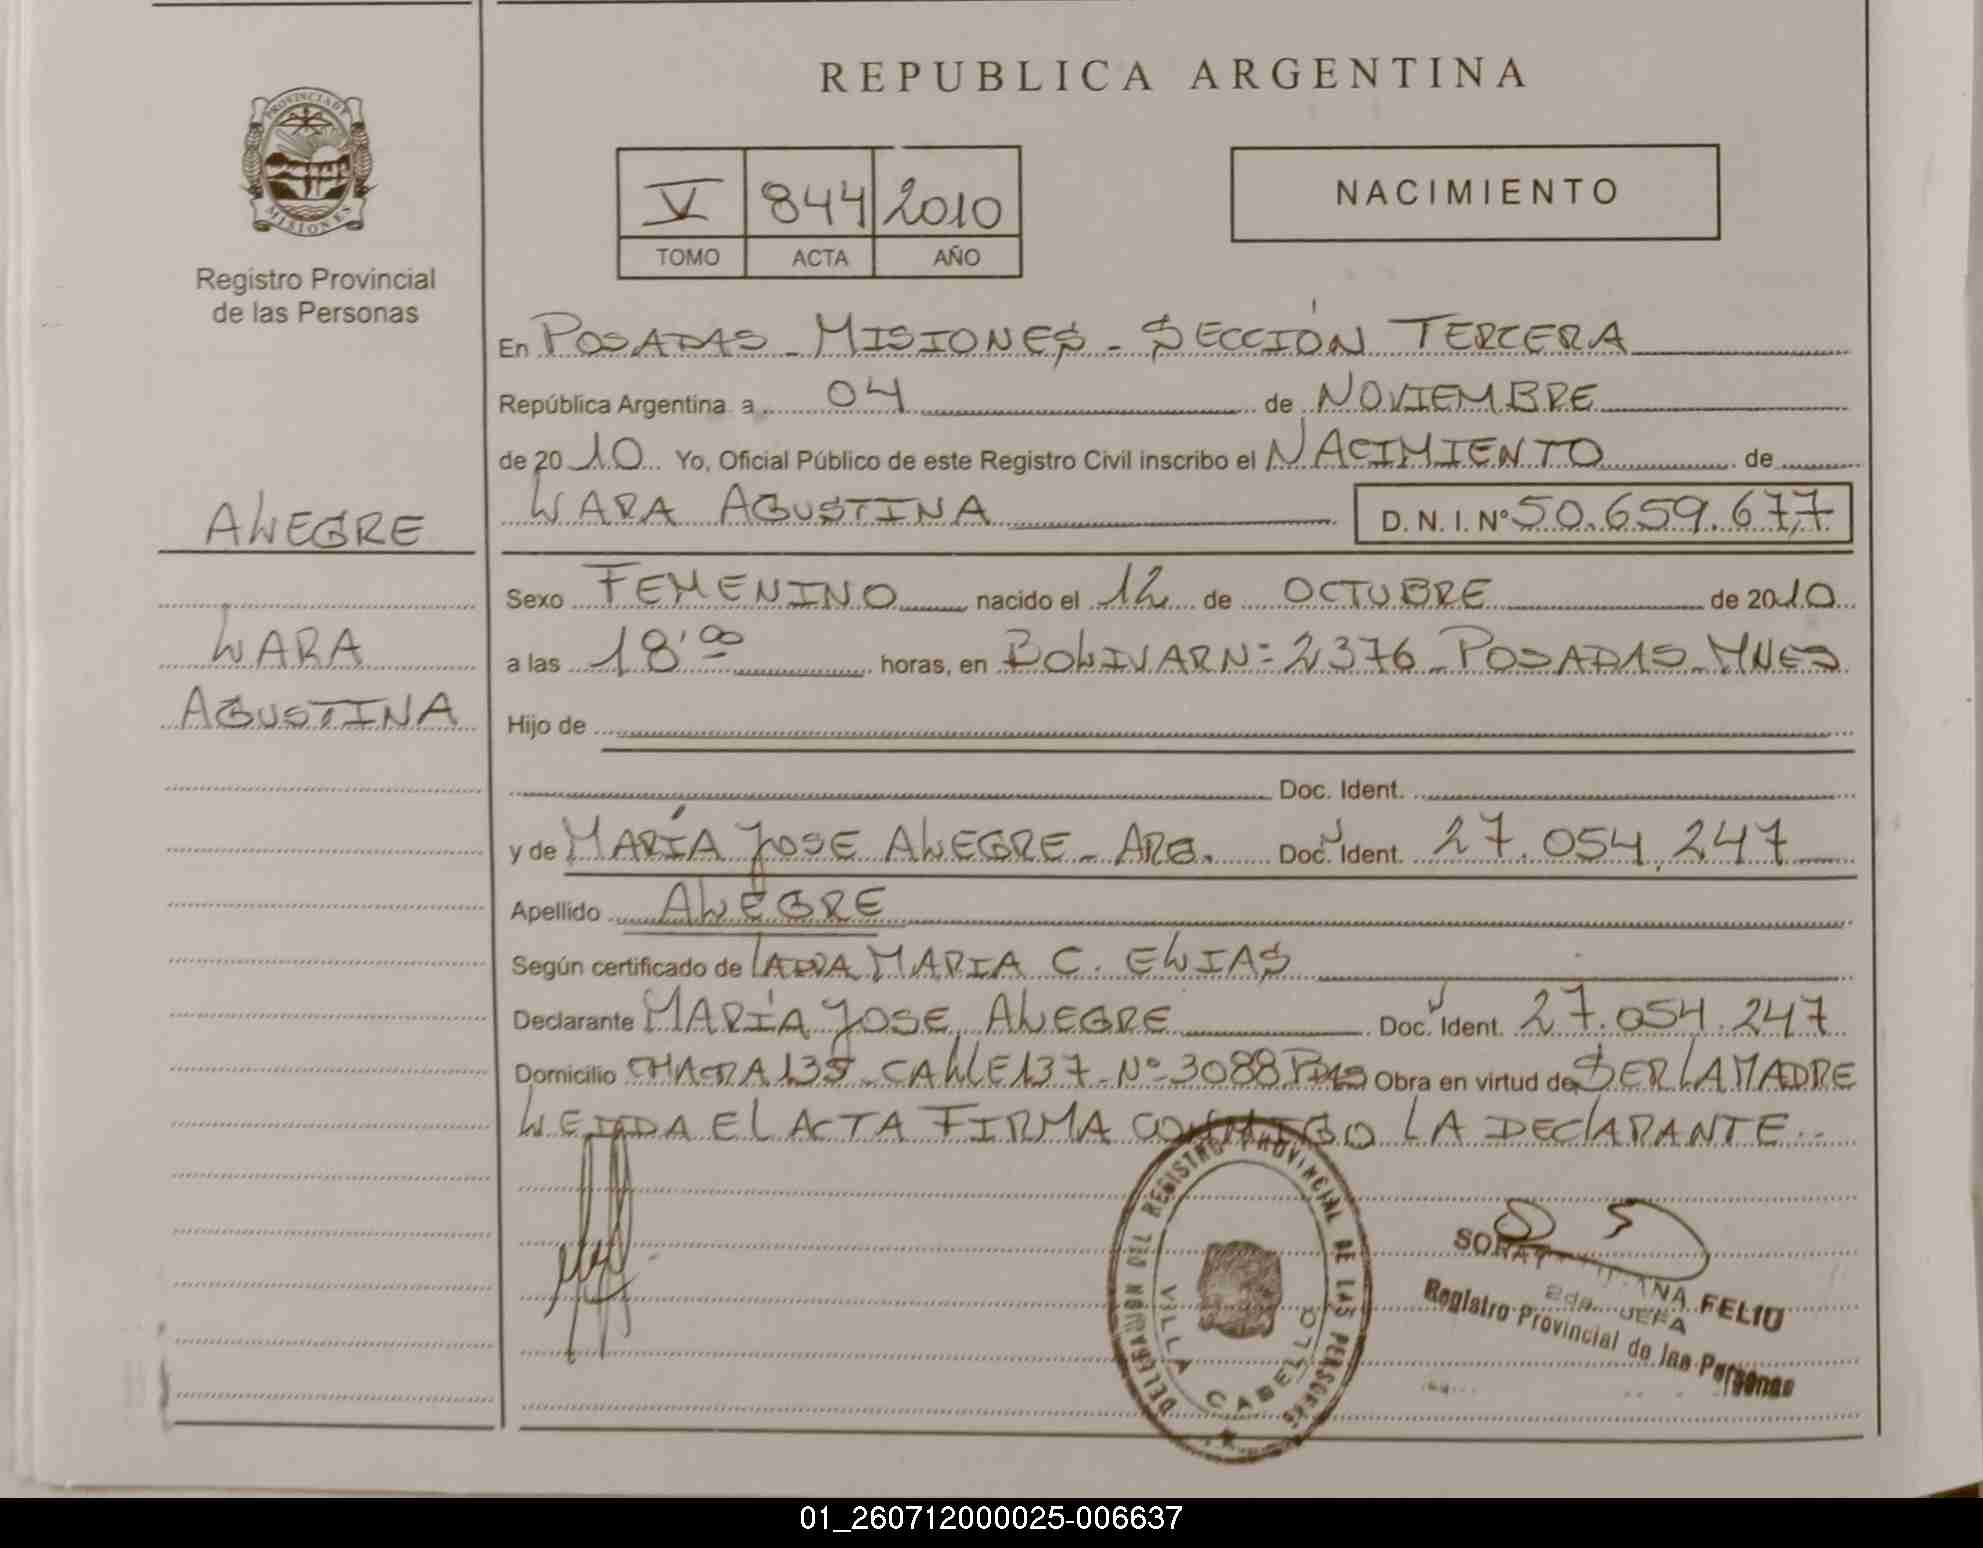 REPUBLICA ARGENTINA
PROVINCIA DE
MISIONES
Registro Provincial
de las Personas
V 844 2010
TOMO ACTA AÑO
NACIMIENTO
En POSADAS - MISIONES - SECCIÓN TERCERA
República Argentina a 04 de NOVIEMBRE
de 2010 Yo, Oficial Público de este Registro Civil inscribo el NACIMIENTO de
LARA AGUSTINA D.N.I. Nº 50.659.677
ALEGRE
LARA
AGUSTINA
Sexo FEMENINO nacido el 12 de OCTUBRE de 2010
a las 18'00 horas, en BOLIVAR Nº 2376 - POSADAS - MNES
Hijo de
Doc. Ident.
y de MARÍA JOSE ALEGRE - ARG. Doc. Ident. 27.054.247
Apellido ALEGRE
Según certificado de LA DRA MARIA C. ELIAS
Declarante MARÍA JOSE ALEGRE Doc. Ident. 27.054.247
Domicilio CHACRA 135 - CALLE 137 - Nº 3088 PDAS Obra en virtud de SER LA MADRE
LEIDA EL ACTA FIRMA CONMIGO LA DECLARANTE..
DELEGACIÓN DEL REGISTRO PROVINCIAL DE LAS PERSONAS
VILLA CABELLO
FELIU
2da. JEFA
Registro Provincial de las Personas
01_260712000025-006637